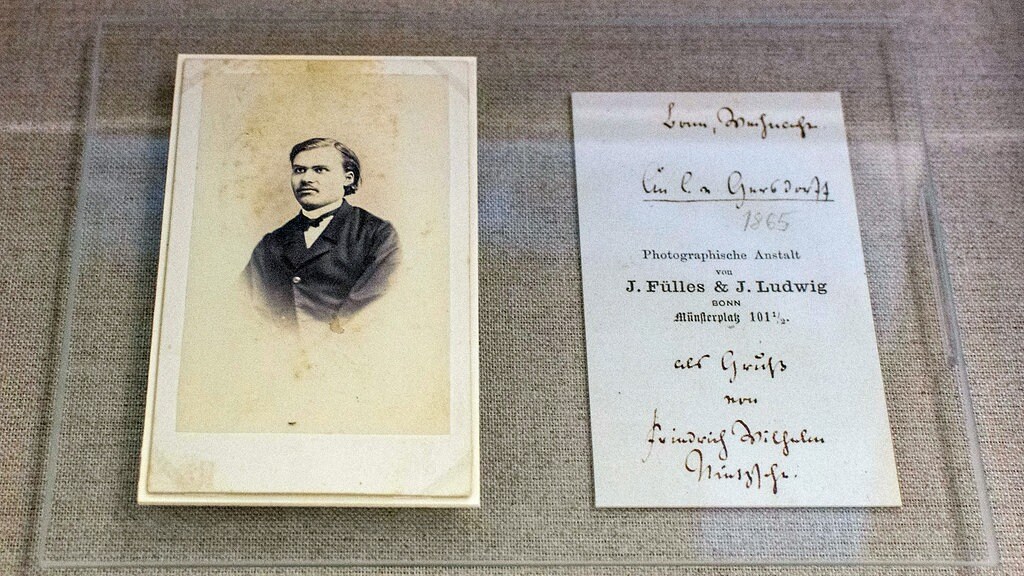 Bonn, Weihnacht.
An C v Gersdorff
1865
Photographische Anstalt
von
J. Fülles & J. Ludwig
BONN
Münsterplatz 101 1/2.
als Gruß
von
Friedrich Wilhelm
Nietzsche.